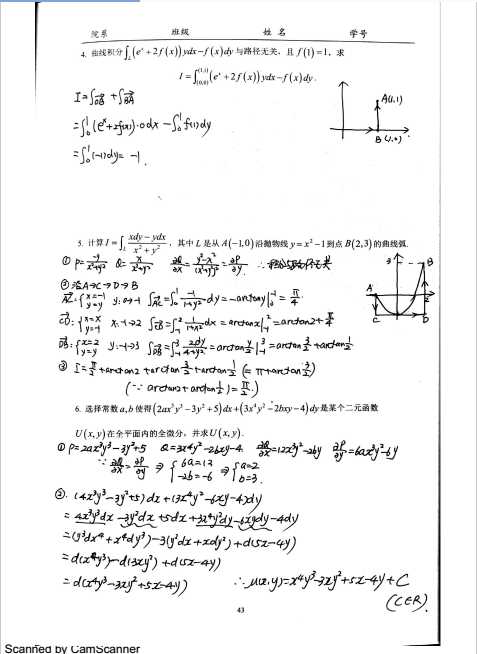 院系 班级 姓名 学号
4. 曲线积分∫_L(e^x+2f(x))ydx−f(x)dy与路径无关，且f(1)=1，求
I=∫_(0,0)^(1,1)(e^x+2f(x))ydx−f(x)dy.
I=∫_OB +∫_BA
=∫_0^1(e^x+2f(x))·0dx−∫_0^1 f(1)dy
=∫_0^1(-1)dy= -1.
A(1,1)
B(1,0)
5. 计算I=∫_L (xdy−ydx)/(x²+y²)，其中L是从A(−1,0)沿抛物线y=x²−1到点B(2,3)的曲线弧.
① P=-y/(x²+y²) Q=x/(x²+y²) ∂Q/∂x=(y²-x²)/(x²+y²)²=∂P/∂y ∴
② 沿A→C→D→B
AC:{x=-1 y=y y:0→-1 ∫_AC=∫_0^-1 -1/(1+y²) dy=-arctany|_0^-1=π/4
CD:{x=x y=-1 x:-1→2 ∫_CD=∫_-1^2 1/(1+x²) dx=arctanx|_-1^2=arctan2+π/4
DB:{x=2 y=y y:-1→3 ∫_DB=∫_-1^3 2dy/(4+y²)=arctan y/2|_-1^3=arctan 3/2+arctan 1/2
③ I=π/2+arctan2+arctan 3/2+arctan 1/2 (=π+arctan 3/2)
(∵ arctan2+arctan 1/2=π/2.)
3
A
B
C
D
2
6. 选择常数a,b使得(2ax³y³−3y²+5)dx+(3x⁴y²−2bxy−4)dy是某个二元函数
U(x,y)在全平面内的全微分，并求U(x,y).
① P=2ax³y³-3y²+5 Q=3x⁴y²-2bxy-4 ∂Q/∂x=12x³y²-2by ∂P/∂y=6ax³y²-6y
∵ ∂Q/∂x=∂P/∂y ⇒ {6a=12 -2b=-6 ⇒ {a=2 b=3.
②. (4x³y³-3y²+5)dx+(3x⁴y²-6xy-4)dy
= 4x³y³dx-3y²dx+5dx+3x⁴y²dy-6xydy-4dy
=(y³dx⁴+x⁴dy³)-3(y²dx+xdy²)+d(5x-4y)
=d(x⁴y³)-d(3xy²)+d(5x-4y)
=d(x⁴y³-3xy²+5x-4y) ∴u(x,y)=x⁴y³-3xy²+5x-4y+C
(C∈R).
43
Scanned by CamScanner